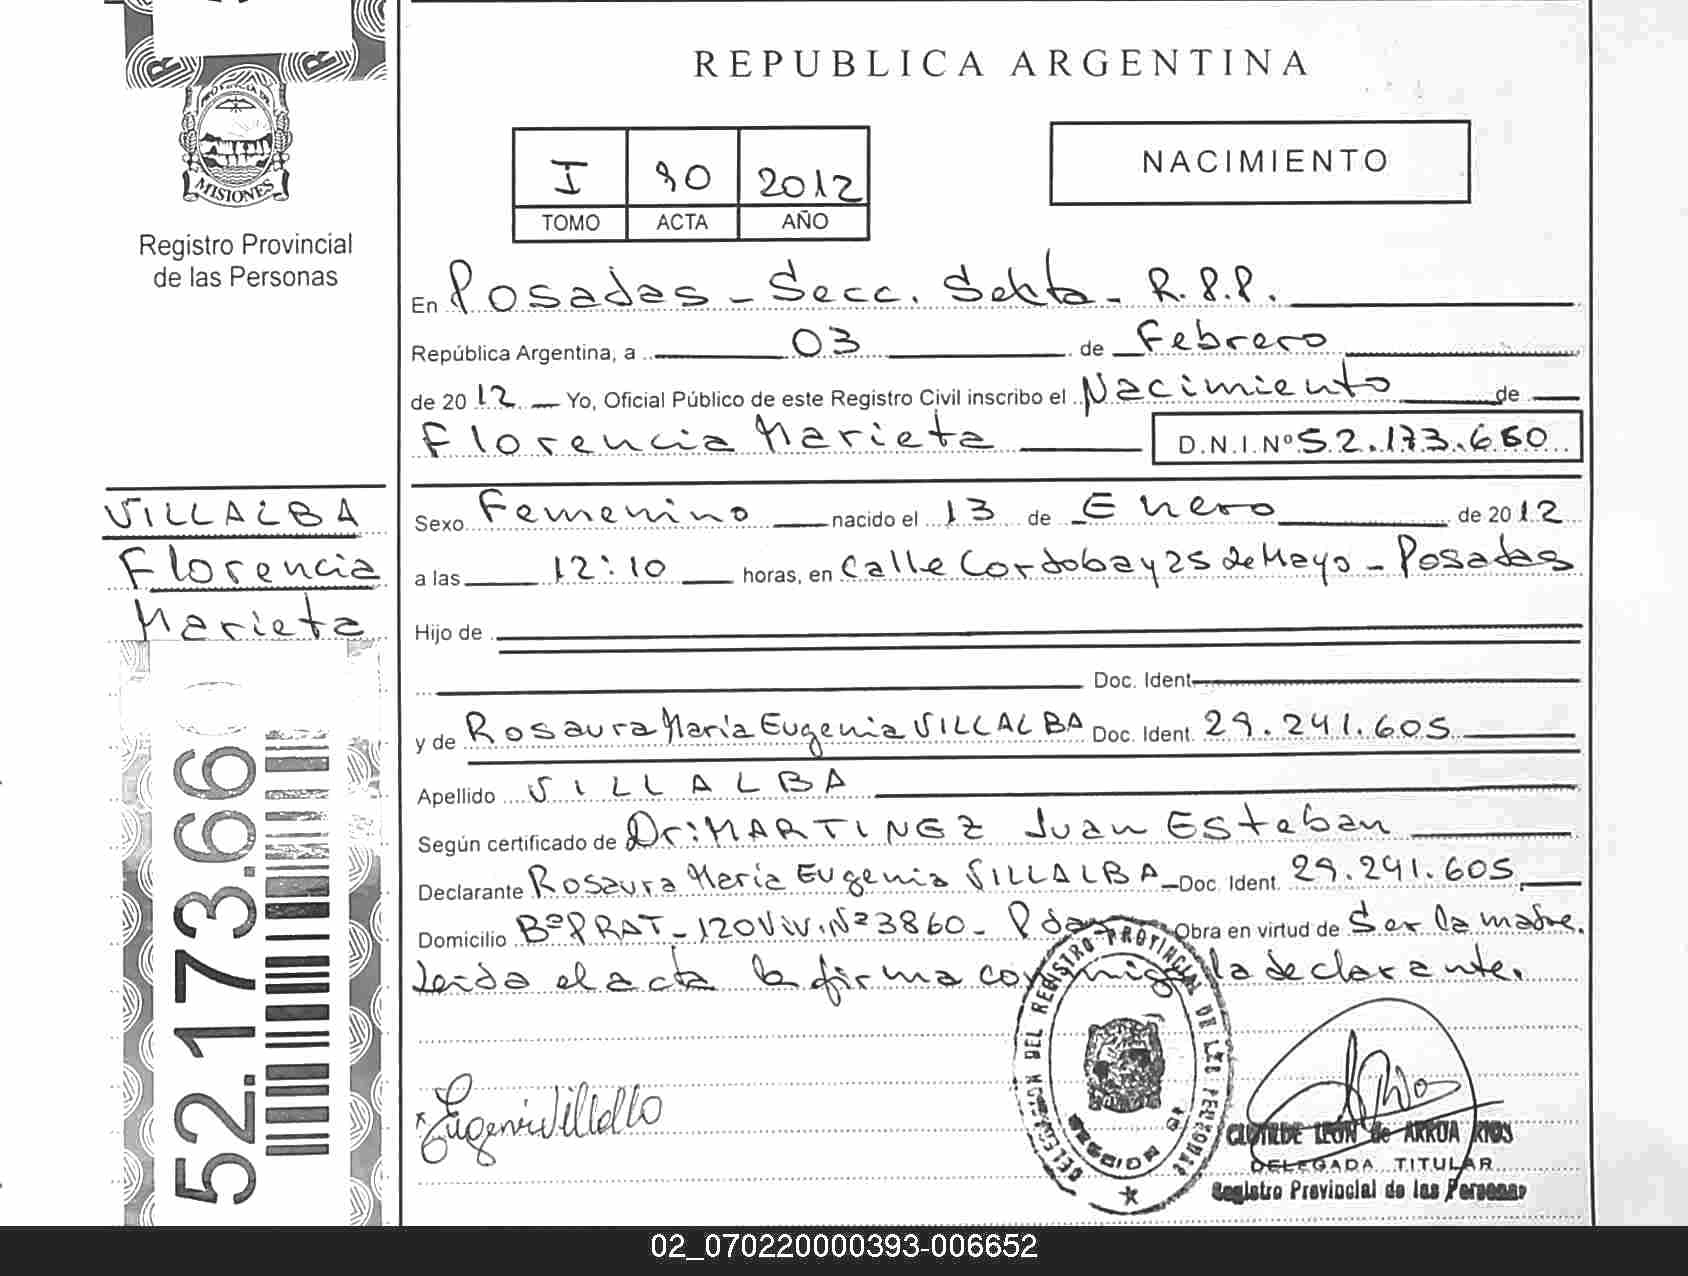 REPUBLICA ARGENTINA
MISIONES
Registro Provincial
de las Personas
I 90 2012
TOMO ACTA AÑO
NACIMIENTO
En Posadas - Secc. Sexta - R.P.P.
República Argentina, a 03 de Febrero
de 2012 Yo, Oficial Público de este Registro Civil inscribo el Nacimiento de
Florencia Marieta D.N.I.Nº 52.173.660
VILLALBA
Florencia
Marieta
Sexo Femenino nacido el 13 de Enero de 2012
a las 12:10 horas, en Calle Cordoba y 25 de Mayo - Posadas
Hijo de
Doc. Ident.
y de Rosaura María Eugenia VILLALBA Doc. Ident. 29.241.605
Apellido VILLALBA
Según certificado de Dr: MARTINEZ Juan Esteban
Declarante Rosaura María Eugenia VILLALBA Doc. Ident. 29.241.605
Domicilio Bº PRAT - 120 Viv. Nº 3860 - Pdas Obra en virtud de Ser la madre.
Leída el acta la firma conmigo la declarante.
52.173.66
Eugenia Villalba
DELEGACION DEL REGISTRO PROVINCIAL DE LAS PERSONAS
CLOTILDE LEON de ARRUA RIOS
DELEGADA TITULAR
Registro Provincial de las Personas
02_070220000393-006652